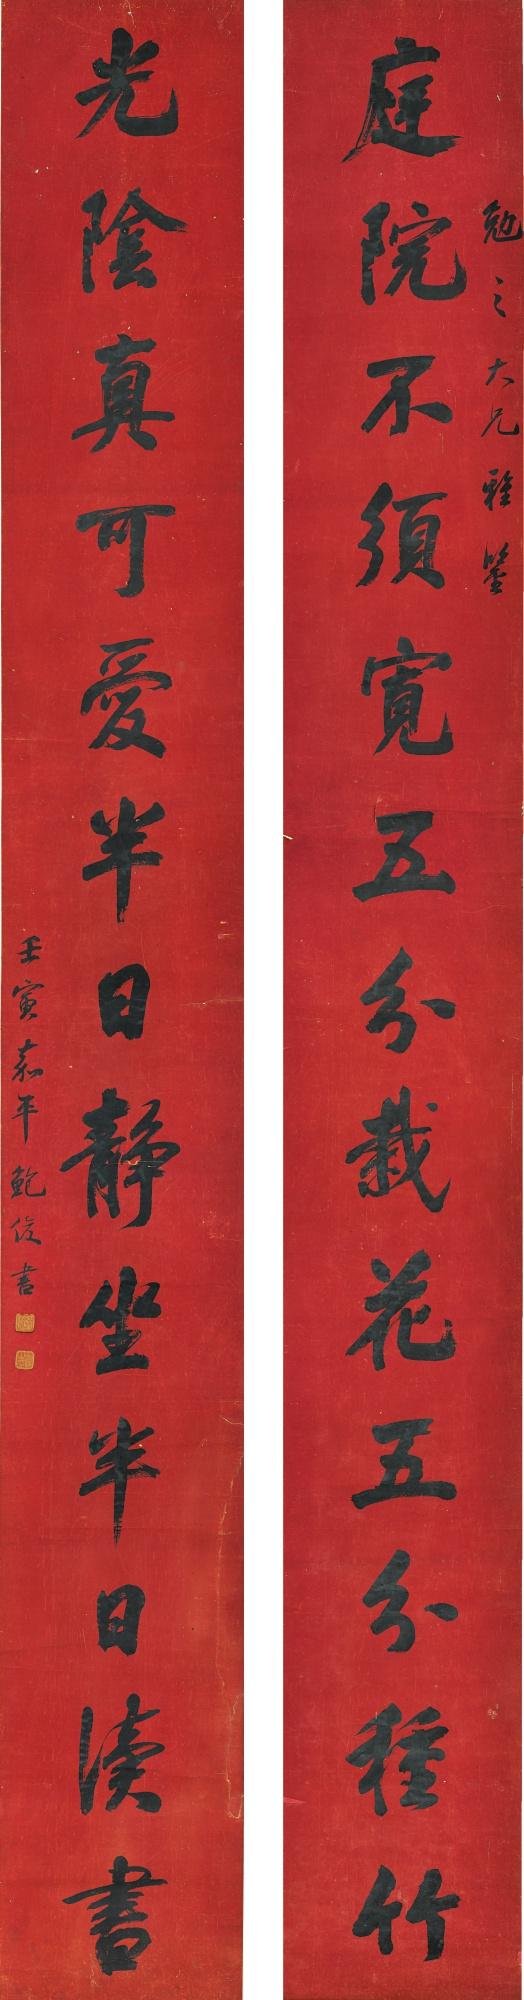 勉之大兄雅鑒
庭院不須寬五分栽花五分種竹
光陰真可愛半日靜坐半日讀書
壬寅嘉平鮑俊書